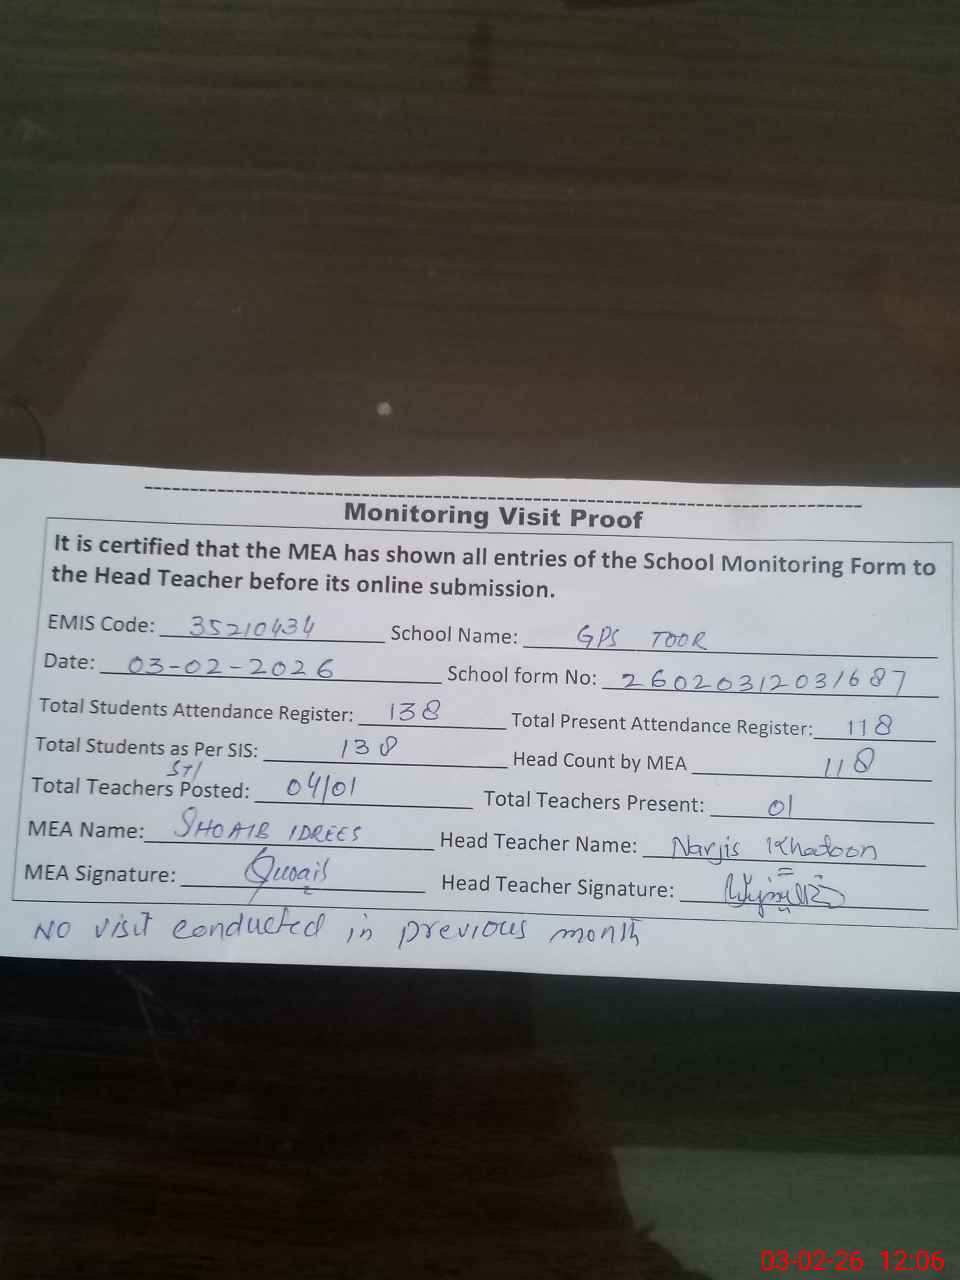 Monitoring Visit Proof
It is certified that the MEA has shown all entries of the School Monitoring Form to
the Head Teacher before its online submission.
EMIS Code: 35210434 School Name: GPS TOOR
Date: 03-02-2026 School form No: 26020312031687
Total Students Attendance Register: 138 Total Present Attendance Register: 118
Total Students as Per SIS: 138 Head Count by MEA 118
STI
Total Teachers Posted: 04/01 Total Teachers Present: 01
MEA Name: SHOAIB IDREES Head Teacher Name: Narjis Khatoon
MEA Signature: Head Teacher Signature:
NO visit conducted in previous month
03-02-26 12:06